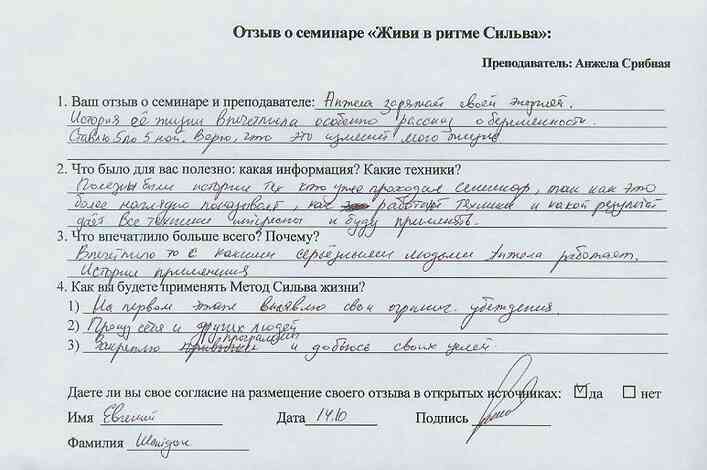 Отзыв о семинаре «Живи в ритме Сильва»:
Преподаватель: Анжела Срибная
1. Ваш отзыв о семинаре и преподавателе: Анжела заряжает своей энергией.
История её жизни впечатлила особенно рассказ о беременности.
Ставлю 5 по 5 ной. Верю, что это изменит мою жизнь
2. Что было для вас полезно: какая информация? Какие техники?
Полезны были истории тех кто уже проходил семинар, так как это
более наглядно показывает, как работает техника и какой результат
даёт Все техники интересны и буду применять.
3. Что впечатлило больше всего? Почему?
Впечатлило то с какими серьёзными людьми Анжела работает.
Истории применения
4. Как вы будете применять Метод Сильва жизни?
1) На первом этапе выявлю свои огранич. убеждения.
2) Прощу себя и других людей
программы
3) Закреплю и добьюсь своих целей.
Даете ли вы свое согласие на размещение своего отзыва в открытых источниках: да нет
Имя Евгений Дата 14.10 Подпись
Фамилия